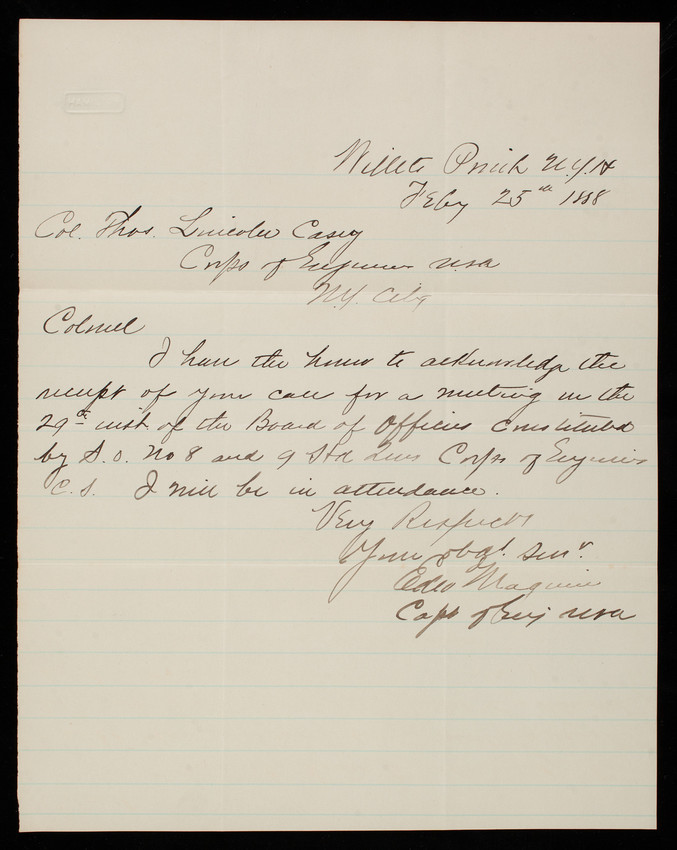 Willets Point N.Y.H
Feby 25th 1888
Col. Thos. Lincoln Casey
Corps of Engineers USA
N.Y. City
Colonel
I have the honor to acknowledge the
receipt of your call for a meeting on the
29th inst. of the Board of Officers Constituted
by S.O. No 8 and 9 Hd Qrs Corps of Engineers
C.S. I will be in attendance.
Very Respects
Your obdt. Serv.
Edw Maguire
Capt of Eng USA